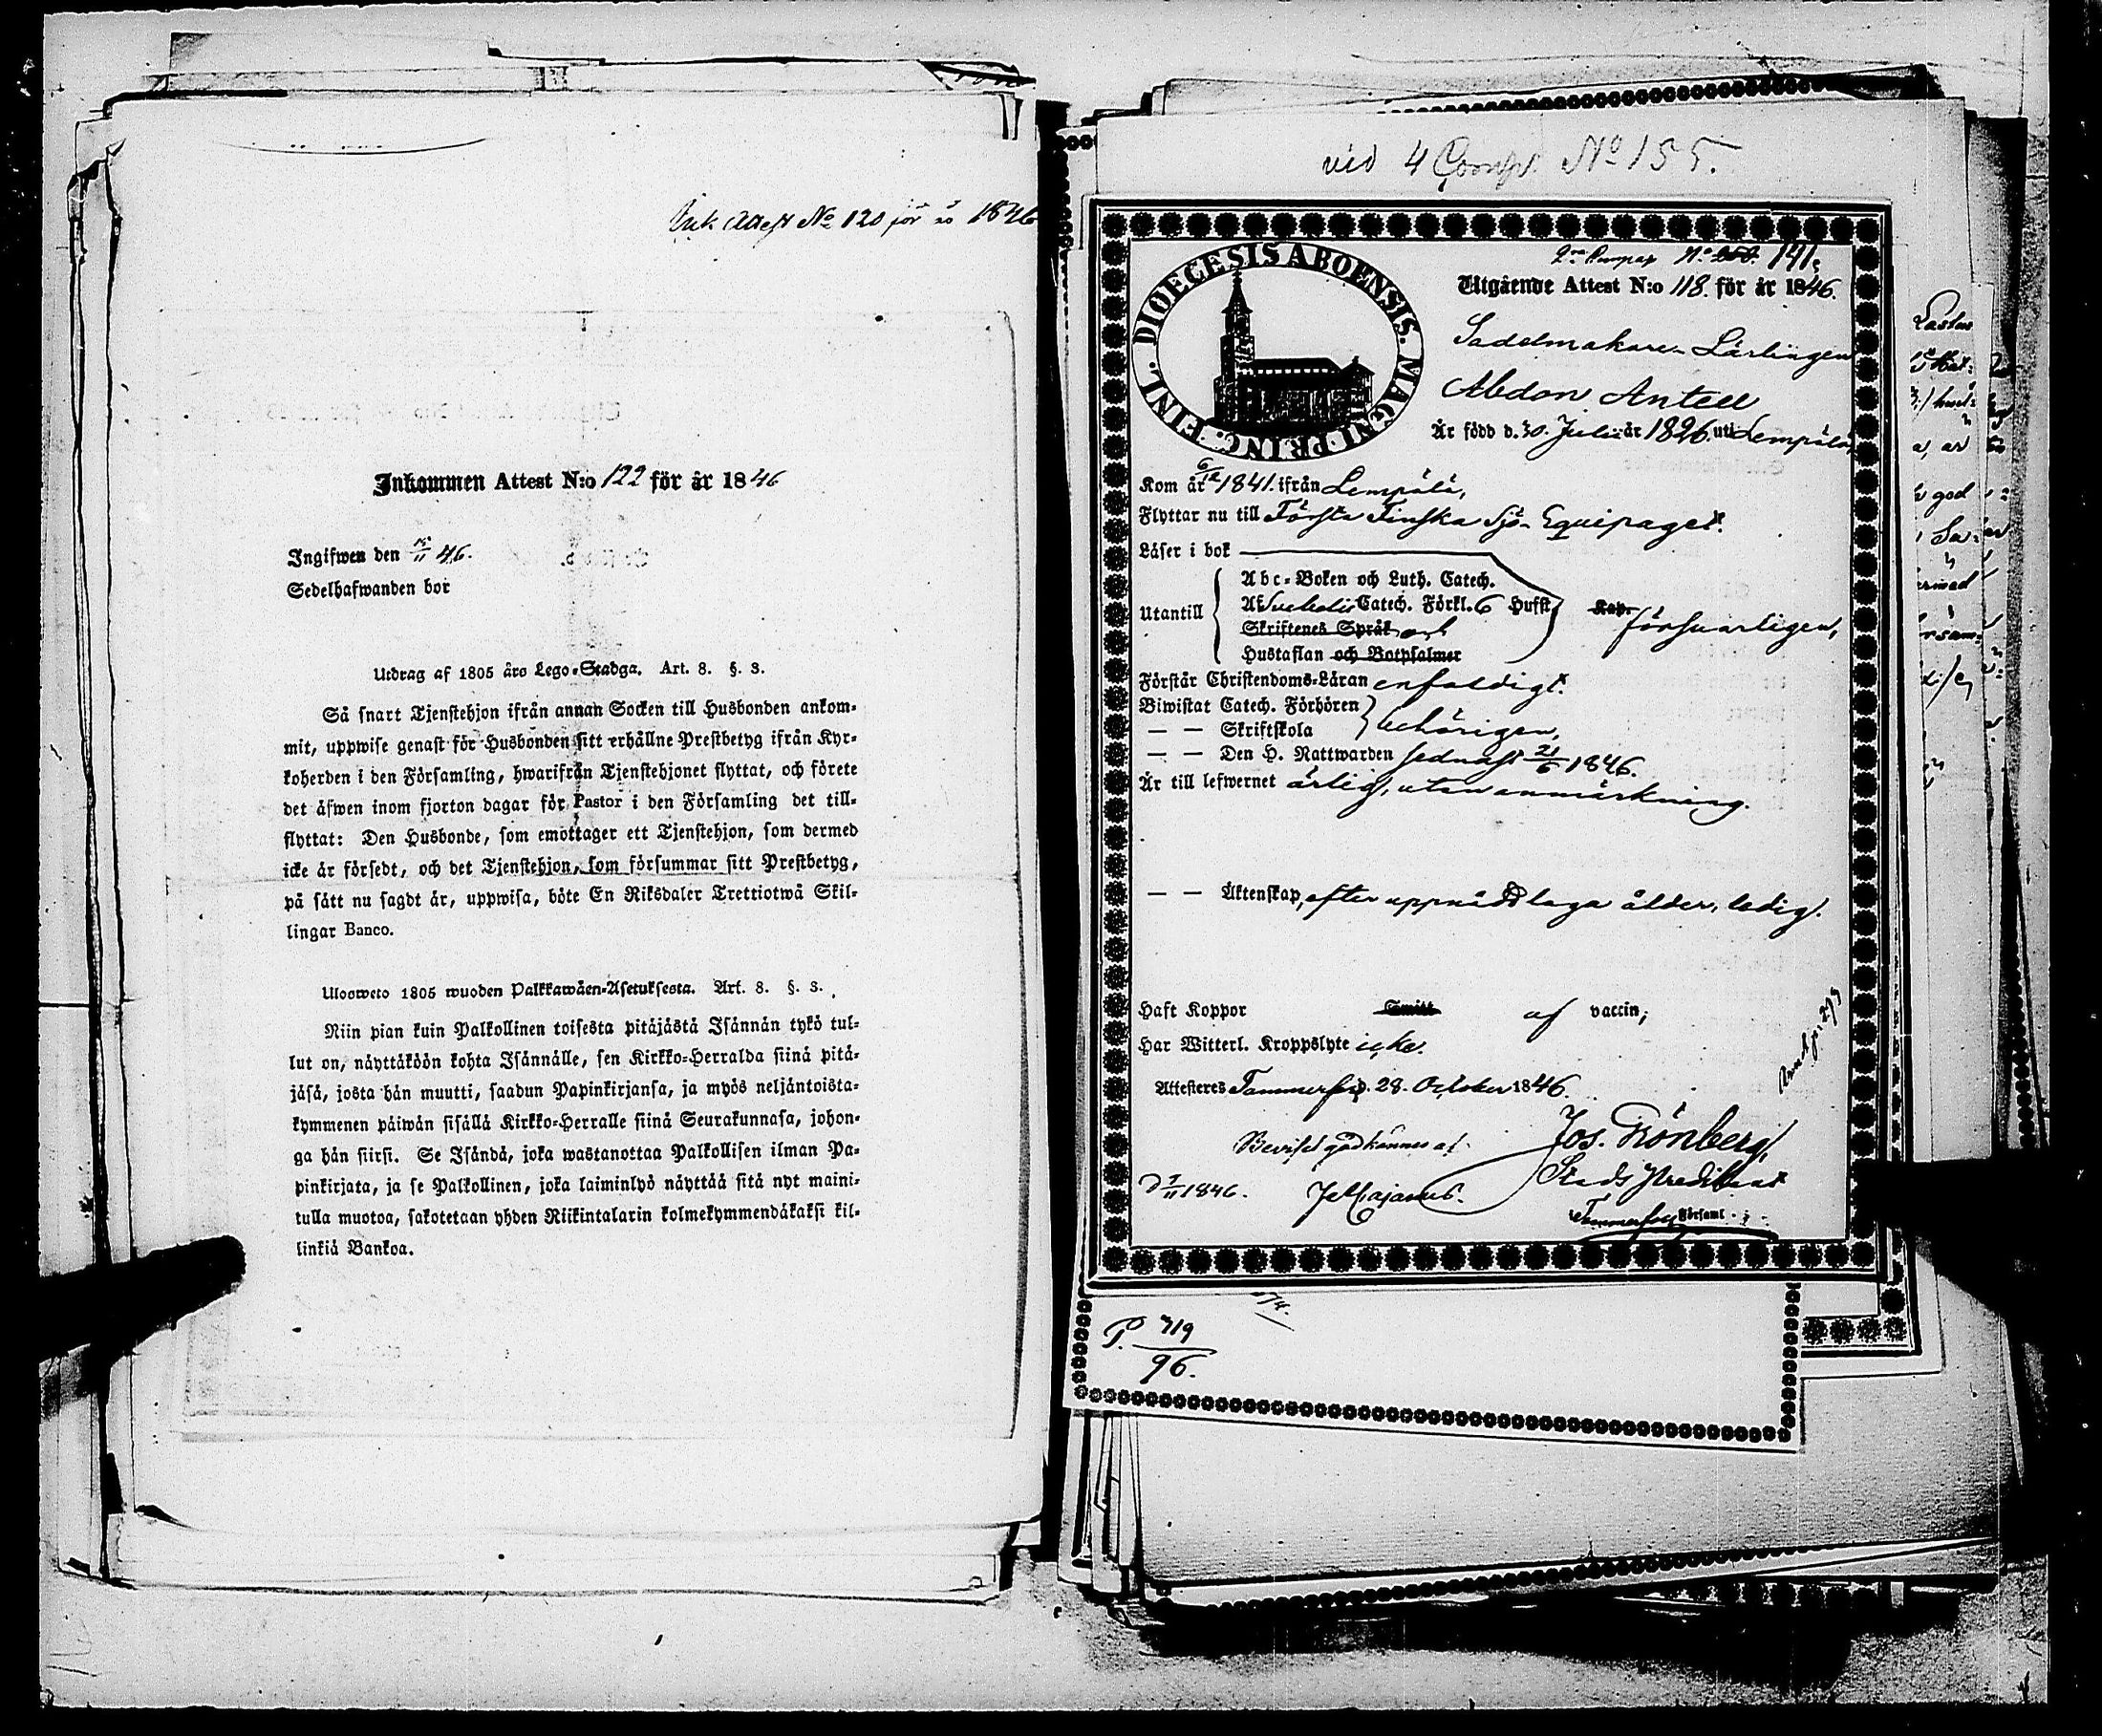 Ink. Attest No 120 för år 1846
Inkommen Attest N:o 122 för år 1846
Ingifwen den /11 46.
Sedelhafwanden bor
Utdrag af 1805 års Lego-Stadga. Art. 8. §. 3.
Så snart Tjenstehjon ifrån annan Socken till Husbonden ankom-
mit, uppwise genast för Husbonden sitt erhållne Prestbetyg ifrån Kyr-
koherden i den Församling, hwarifrån Tjenstehjonet flyttat, och förete
det äfwen inom fjorton dagar för Pastor i den Församling det till-
flyttat: Den Husbonde, som emottager ett Tjenstehjon, som dermed
icke är försedt, och det Tjenstehjon, som försummar sitt Prestbetyg,
på sätt nu sagdt är, uppwisa, böte En Riksdaler Trettiotwå Skil-
lingar Banco.
Ulosweto 1805 wuoden Palkkawäen-Asetuksesta. Art. 8. §. 3.
Niin pian kuin Palkollinen toisesta pitäjästä Isännän tykö tul-
lut on, näyttäköön kohta Isännälle, sen Kirkko-Herralda siinä pitä-
jäsä, josta hän muutti, saadun Papinkirjansa, ja myös neljäntoista-
kymmenen päiwän sisällä Kirkko-Herralle siinä Seurakunnasa, johon-
ga hän siirsi. Se Isändä, joka wastanottaa Palkollisen ilman Pa-
pinkirjata, ja se Palkollinen, joka laiminlyö näyttää sitä nyt maini-
tulla muotoa, sakotetaan yhden Riikintalarin kolmekymmendäkaksi kil-
linkiä Bankoa.
vid 4 Comp. No 155.
DIOECESIS ABOENSIS. MAGNI PRINC. FINL.
No 141.
Utgående Attest N:o 118. för år 1846.
Sadelmakare-Lärlingen
Abdon Antell
Är född d. 30. Julii år 1826. uti Lempälä,
Kom år 6/12 1841. ifrån Lempälä,
Flyttar nu till Första Finska Sjö-Equipaget.
Läser i bok
Abc-Boken och Luth. Catech.
Utantill Af Svebelii Catech. Förkl. 6 Hufst. Kap. försvarligen,
Skriftenes Språk och
Hustaflan och Botpsalmer
Förstår Christendoms-Läran enfaldigt.
Biwistat Catech. Förhören
— — Skriftskola behörigen,
— — Den H. Nattwarden sednast 21/6 1846.
Är till lefwernet ärlig, utan anmärkning.
— — Äktenskap, efter uppnådd laga ålder, ledig.
Haft Koppor Smitt af vaccin;
Har Witterl. Kroppslyte icke.
Attesteres Tammerfors d. 28. October 1846.
Beviset godkännes af. Jos. Grönberg,
Stads Predikant
D 7/11 1846. J. Majanus.
Tammerfors Församl.
P. 719
96.